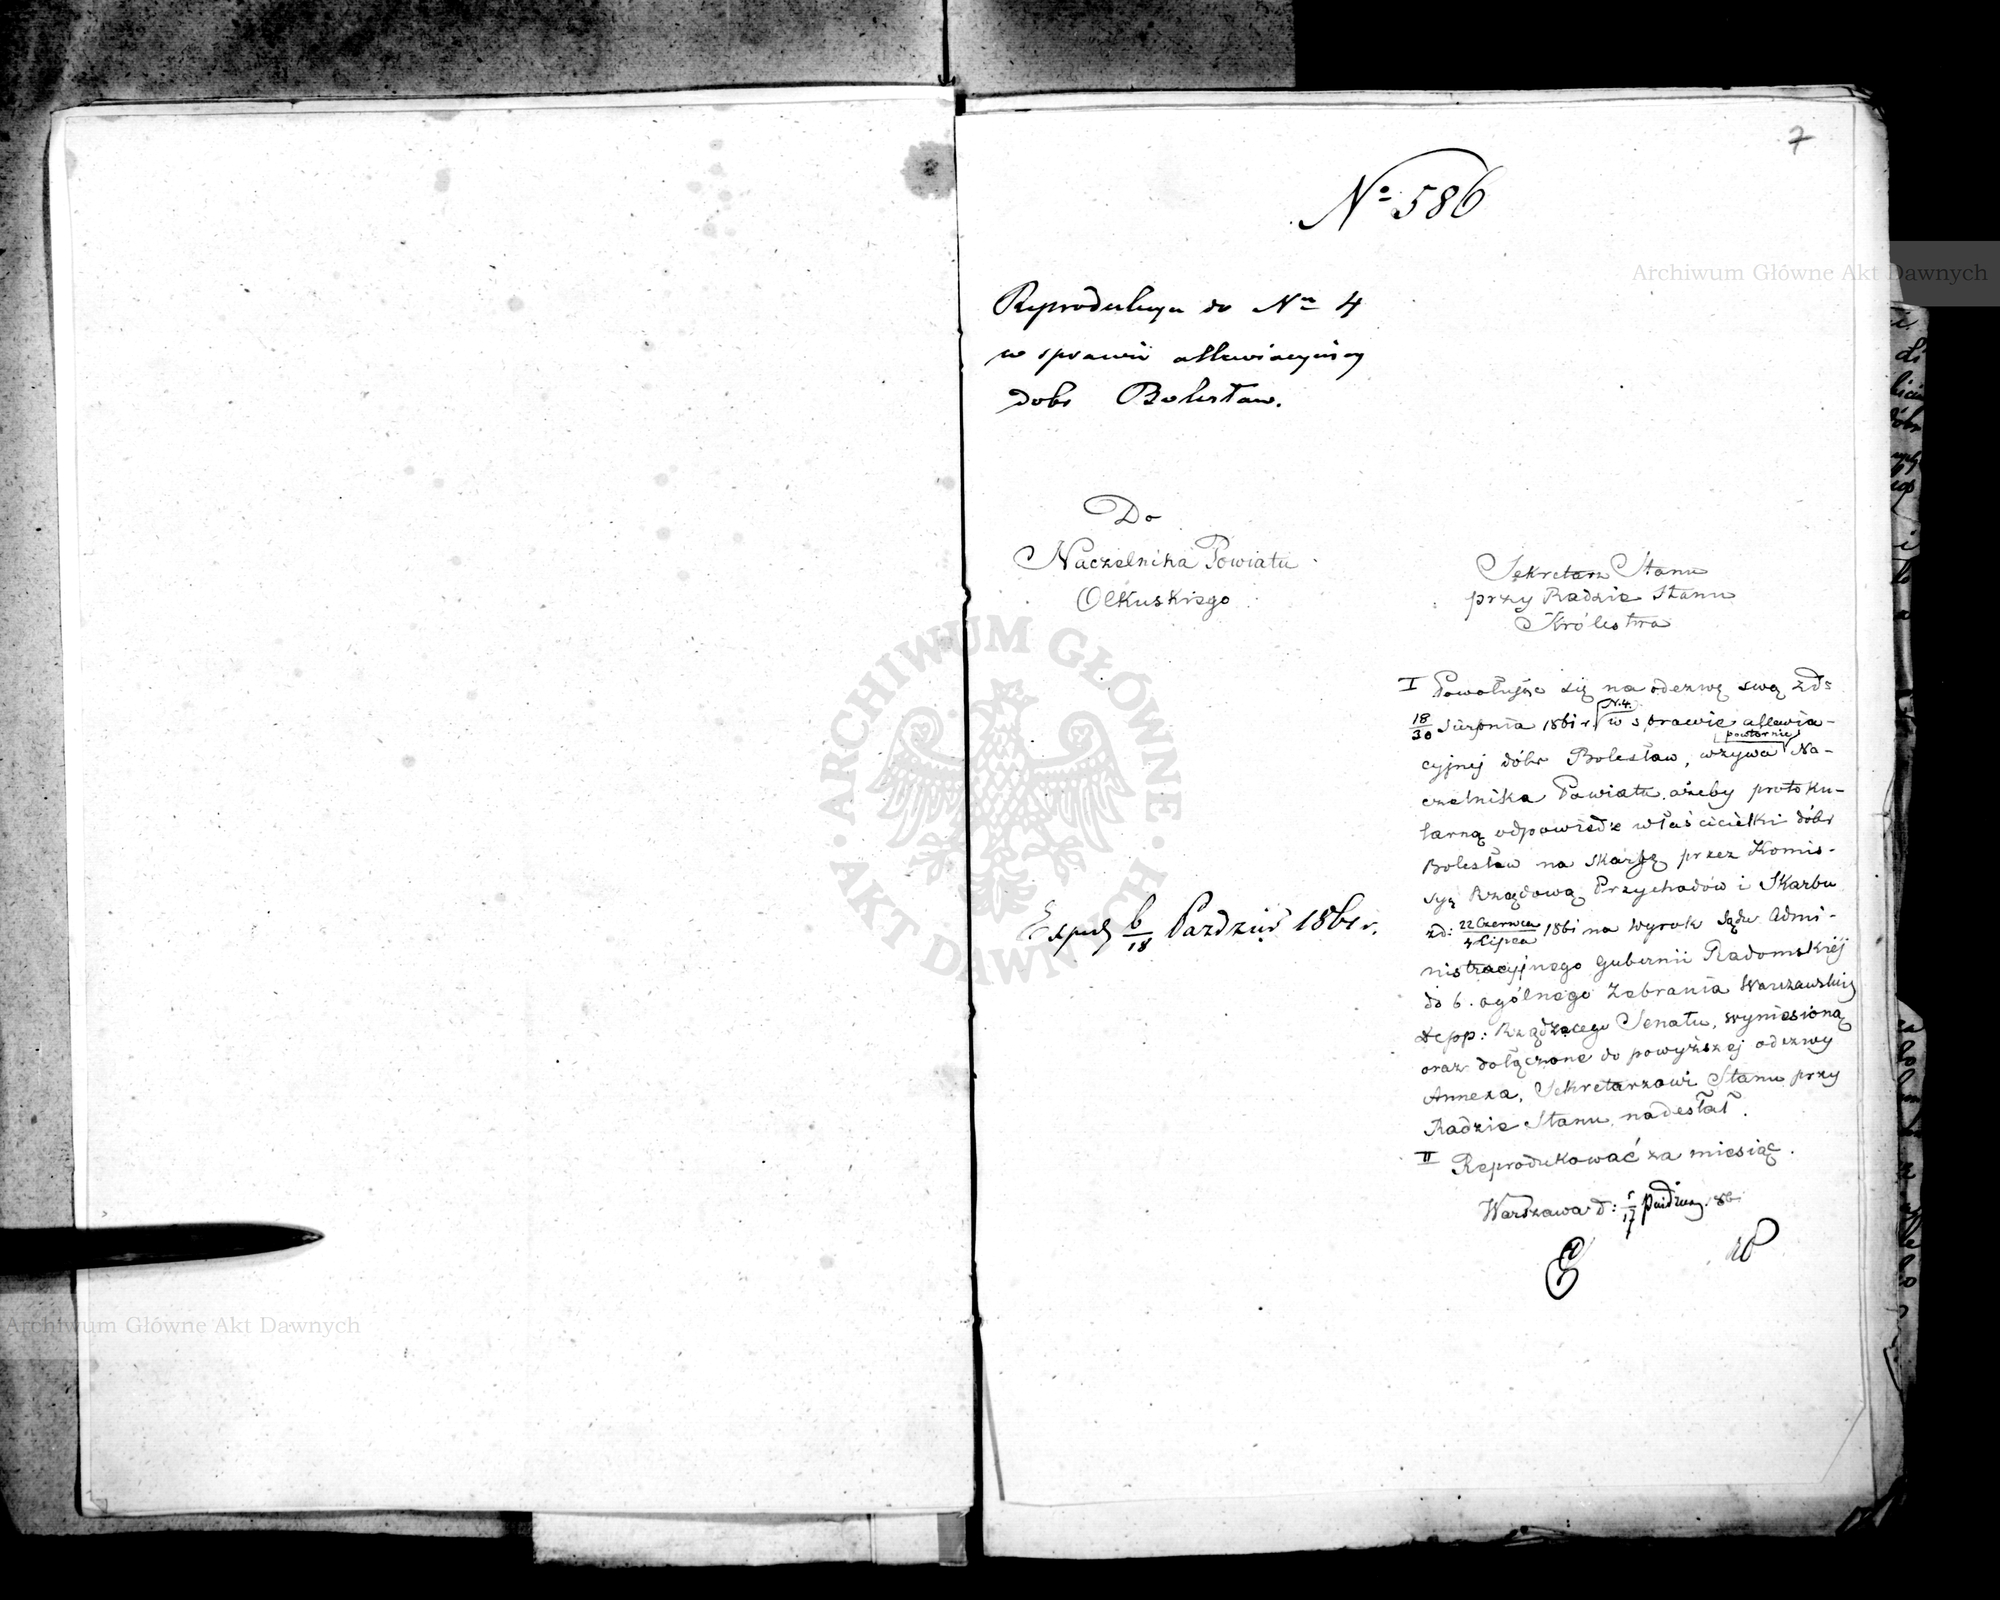 7
No 586
Reprodukcya do Nru 4
w sprawie allewiacyjnej
dóbr Bolesław.
Do
Naczelnika Powiatu
Olkuskiego
Sekretarz Stanu
przy Radzie Stanu
Królestwa
I Powołując się na odezwę swą z d:
18/30 Sierpnia 1861 r. N. 4. w sprawie allewia-
cyjnej dóbr Bolesław, wzywa powtórnie Na-
czelnika Powiatu, ażeby protoku-
larną odpowiedź właścicielki dóbr
Bolesław na skargę przez Komis-
syę Rządową Przychodów i Skarbu
z d: 22 Czerwca/4 Lipca 1861 na wyrok Sądu Admi-
nistracyjnego Gubernii Radomskiej
do b. ogólnego Zebrania Warszawskich
Depp: Rządzącego Senatu, wyniesioną
oraz dołączone do powyższej odezwy
Annexa, Sekretarzowi Stanu przy
Radzie Stanu, nadesłał.
II Reprodukować za miesiąc.
Warszawa d: 5/17 Paździer. 1861
Exped 6/18 Paździer 1861 r.
Archiwum Główne Akt Dawnych
Archiwum Główne Akt Dawnych
ARCHIWUM GŁÓWNE AKT DAWNYCH